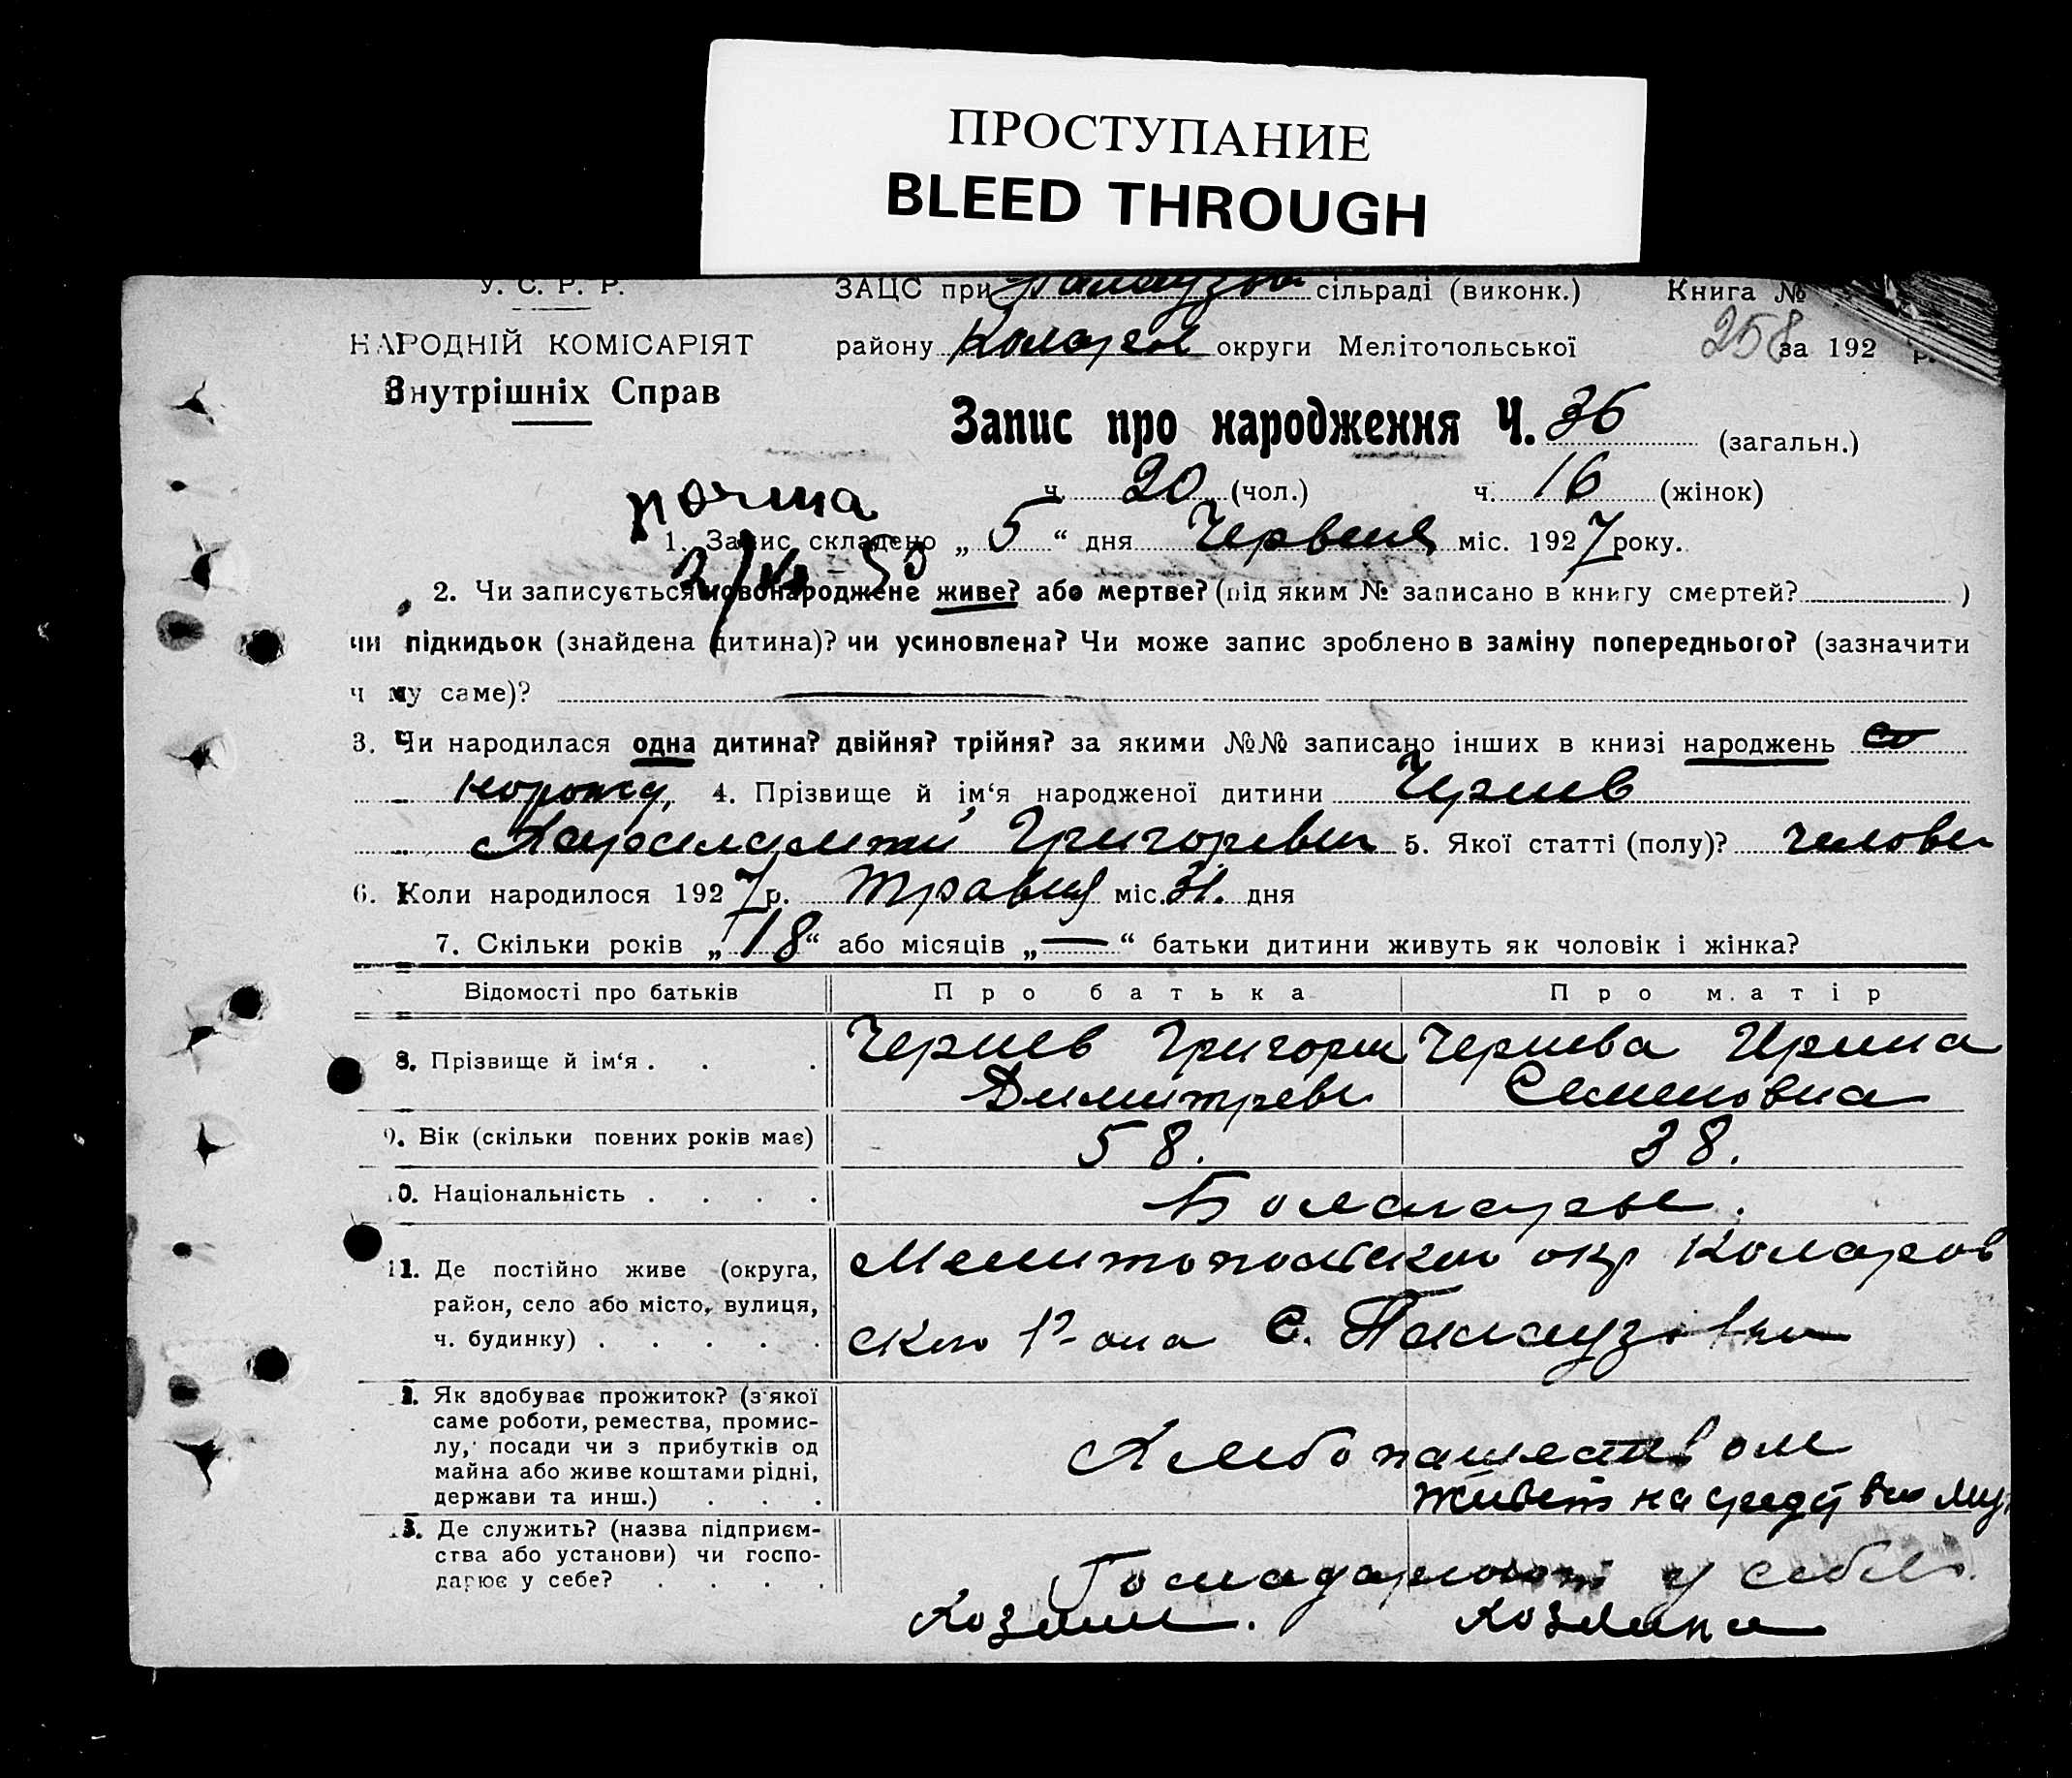 ПРОСТУПАНИЕ
BLEED THROUGH
У. С. Р. Р.
ЗАЦС при сільраді (виконк.) Книга №
НАРОДНІЙ КОМІСАРІЯТ
району Коларск округи Мелітопольської 258 за 192 р.
Внутрішніх Справ
Запис про народження Ч. 36 (загальн.)
ч. 20 (чол.) ч. 16 (жінок)
почта
1. Запис складено „ 5 “ дня Червня міс. 1927 року.
2. Чи записується новонароджене живе? або мертве? (під яким № записано в книгу смертей? )
чи підкидьок (знайдена дитина)? чи усиновлена? Чи може запис зроблено в заміну попереднього? (зазначити
чому саме)?
3. Чи народилася одна дитина? двійня? трійня? за якими №№ записано інших в книзі народжень
4. Прізвище й ім‘я народженої дитини Чернев
Харалампий Григоревич 5. Якої статті (полу)? человеч
6. Коли народилося 1927 р. травня міс. 31. дня
7. Скільки років „ 18 “ або місяців „ — “ батьки дитини живуть як чоловік і жінка?
Відомості про батьків Про батька Про матір
8. Прізвище й ім‘я . . . Чернев Григорий Чернева Ирина
Димитреви Семеновна
9. Вік (скільки повних років має) 58. 38.
10. Національність . . . . Болгары.
11. Де постійно живе (округа, район, село або місто, вулиця, ч. будинку) . . . . . Мелитопольского окр Коларов
ского р-она с. Палаузовка
12. Як здобуває прожиток? (з якої саме роботи, ремества, промислу, посади чи з прибутків од майна або живе коштами рідні, держави та инш.) . . . Хлебопашеством
Живет на средства муж
13. Де служить? (назва підприємства або установи) чи господарює у себе? . . . . Господарюют у себе.
Хозяин. Хозяйка